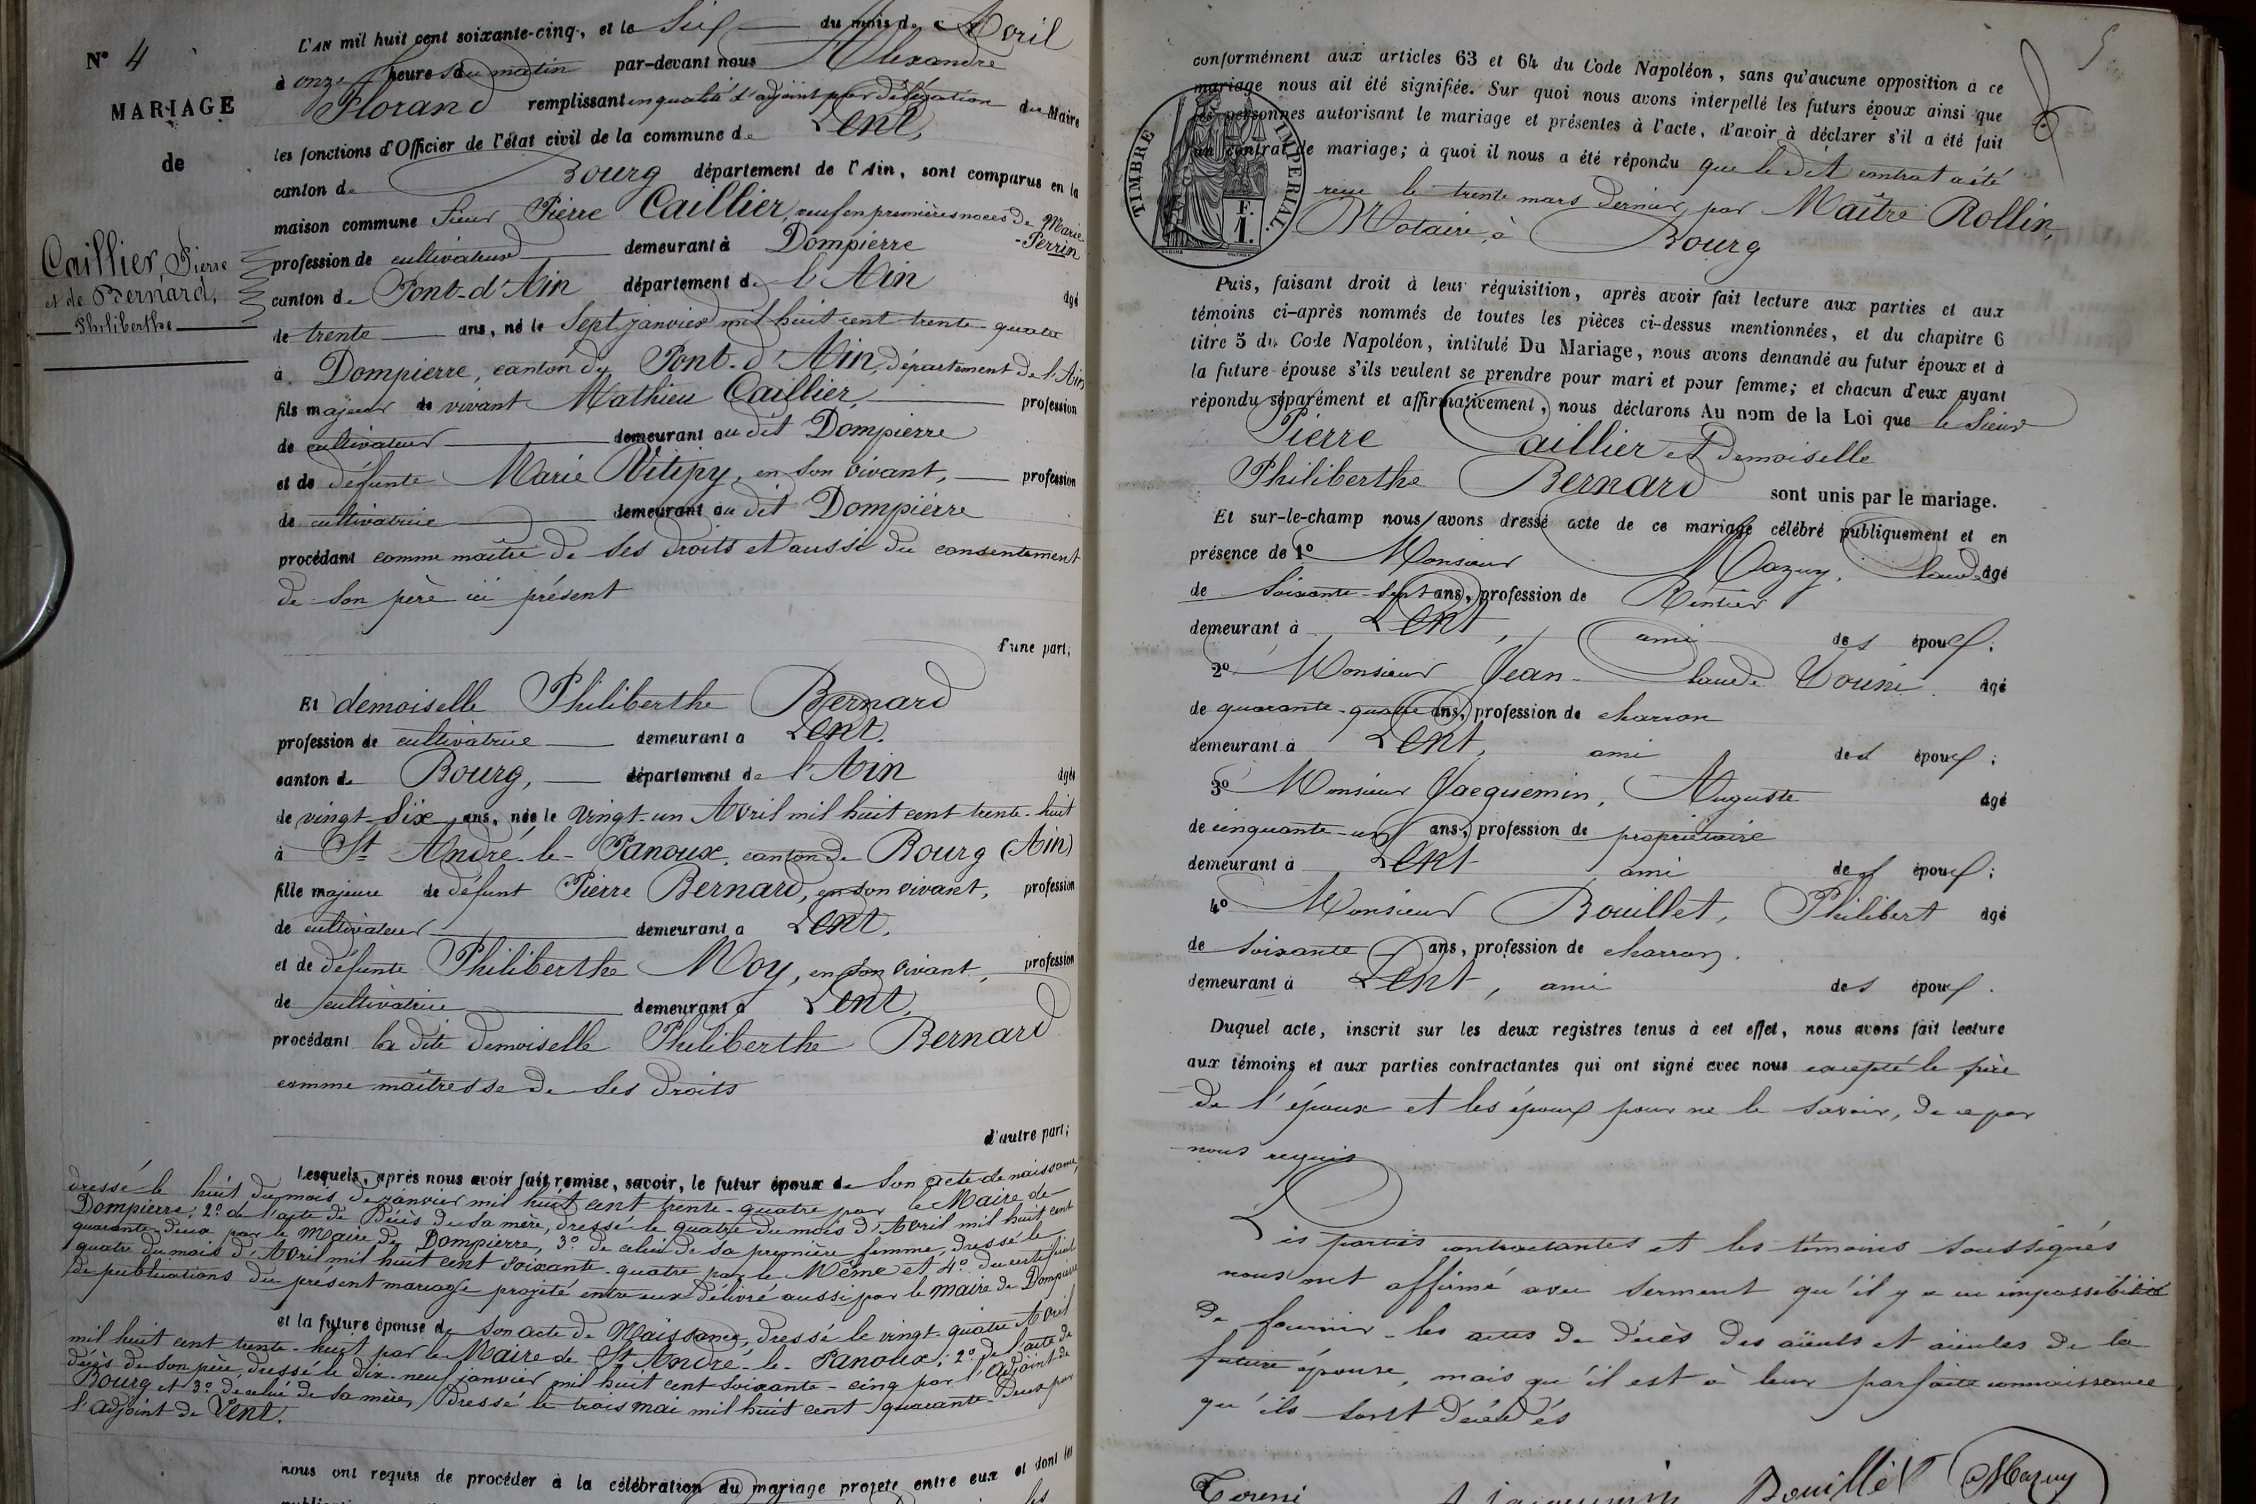 N° 4
MARIAGE
de
Caillier, Pierre
et de Bernard,
Philiberthe
L'AN mil huit cent soixante-cinq, et le Six du mois de Avril
à onze heures du matin par-devant nous Alexandre
Florand remplissant en qualité d'adjoint par délégation du Maire
les fonctions d'Officier de l'état civil de la commune de Lent,
canton de Bourg département de l'Ain, sont comparus en la
maison commune Sieur Pierre Caillier, veuf en premières noces de Marie
-Perrin
profession de cultivateur demeurant à Dompierre
canton de Pont-d'Ain département de l'Ain âgé
de trente ans, né le Sept janvier mil huit cent trente-quatre
à Dompierre, canton du Pont-d'Ain, département de l'Ain
fils majeur de vivant Mathieu Caillier, profession
de cultivateur demeurant au dit Dompierre
et de défunte Marie Vitipy, en son vivant, profession
de cultivatrice demeurant au dit Dompierre
procédant comme maître de ses droits et aussi du consentement
de son père ici présent
d'une part;
Et demoiselle Philiberthe Bernard
profession de cultivatrice demeurant à Lent,
canton de Bourg, département de l'Ain âgée
de vingt-Six ans, née le Vingt-un Avril mil huit cent trente-huit
à St André-le-Panoux, canton de Bourg (Ain)
fille majeure de défunt Pierre Bernard, en son vivant, profession
de cultivateur demeurant à Lent,
et de défunte Philiberthe Moy, en son vivant, profession
de cultivatrice demeurant à Lent,
procédant la dite demoiselle Philiberthe Bernard
comme maîtresse de ses droits
d'autre part;
Lesquels, après nous avoir fait remise, savoir, le futur époux de son acte de naissance,
dressé le huit du mois de janvier mil huit cent trente-quatre par le Maire de
Dompierre; 2° de l'acte de Décès de sa mère, dressé le quatre du mois d'Avril mil huit cent
quarante-deux par le Maire de Dompierre, 3° de celui de sa première femme, dressé le
quatre du mois d'Avril mil huit cent soixante-quatre par le Même et 4° du certificat
de publications du présent mariage projeté entre eux délivré aussi par le maire de Dompierre
et la future épouse de son acte de Naissance, dressé le vingt-quatre Avril
mil huit cent trente-huit par le Maire de St André-le-Panoux; 2° de l'acte de
décès de son père, dressé le dix-neuf janvier mil huit cent soixante-cinq par l'adjoint de
Bourg et 3° de celui de sa mère, dressé le trois mai mil huit cent quarante-deux par
l'adjoint de Lent.
nous ont requis de procéder à la célébration du mariage projeté entre eux et dont les
5
conformément aux articles 63 et 64 du Code Napoléon, sans qu'aucune opposition à ce
mariage nous ait été signifiée. Sur quoi nous avons interpellé les futurs époux ainsi que
les personnes autorisant le mariage et présentes à l'acte, d'avoir à déclarer s'il a été fait
un contrat de mariage; à quoi il nous a été répondu que le dit contrat a été
reçu le trente mars dernier, par Maître Rollin,
Notaire, à Bourg
TIMBRE IMPERIAL.
F.
1.
Puis, faisant droit à leur réquisition, après avoir fait lecture aux parties et aux
témoins ci-après nommés de toutes les pièces ci-dessus mentionnées, et du chapitre 6
titre 5 du Code Napoléon, intitulé Du Mariage, nous avons demandé au futur époux et à
la future épouse s'ils veulent se prendre pour mari et pour femme; et chacun d'eux ayant
répondu séparément et affirmativement, nous déclarons Au nom de la Loi que le Sieur
Pierre Caillier et Demoiselle
Philiberthe Bernard sont unis par le mariage.
Et sur-le-champ nous avons dressé acte de ce mariage célébré publiquement et en
présence de 1° Monsieur Mazuy, Claude âgé
de Soixante-sept ans, profession de Rentier
demeurant à Lent, ami des époux;
2° Monsieur Jean-Claude Touni âgé
de quarante-quatre ans, profession de charron
demeurant à Lent, ami des époux;
3° Monsieur Jacquemin, Auguste âgé
de cinquante-un ans, profession de propriétaire
demeurant à Lent ami des époux;
4° Monsieur Bouillet, Philibert âgé
de soixante ans, profession de charron
demeurant à Lent, ami des époux.
Duquel acte, inscrit sur les deux registres tenus à cet effet, nous avons fait lecture
aux témoins et aux parties contractantes qui ont signé avec nous excepté le père
de l'époux et les époux pour ne le savoir, de ce par
nous requis
Les parties contractantes et les témoins soussignés
nous ont affirmé avec serment qu'il y a eu impossibilité
de fournir les actes de décès des aïeuls et aïeules de la
future épouse, mais qu'il est à leur parfaite connaissance
qu'ils sont décédés
Touni A Jacquemin Bouillet Mazuy